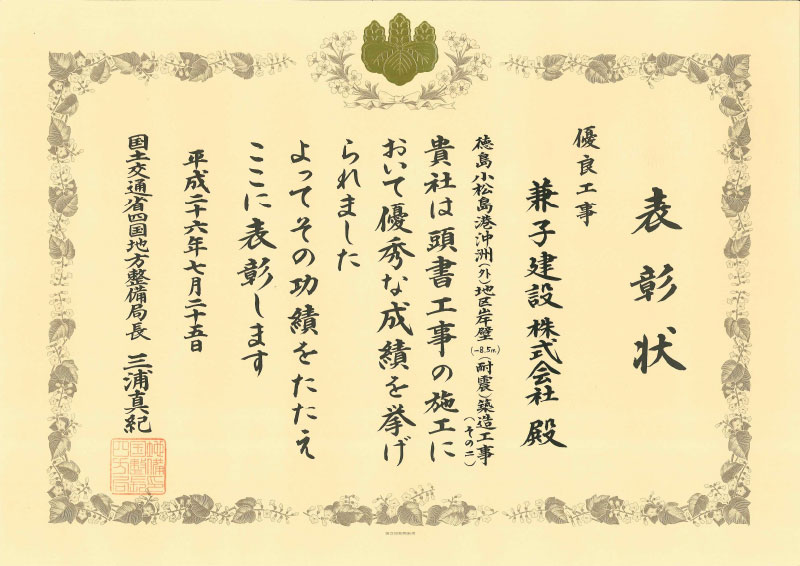 表彰状
優良工事
兼子建設株式会社 殿
徳島小松島港沖洲(外)地区岸壁(-8.5m)(耐震)築造工事(その二)
貴社は頭書工事の施工に
おいて優秀な成績を挙げ
られました
よってその功績をたたえ
ここに表彰します
平成二十六年七月二十五日
国土交通省四国地方整備局長 三浦真紀